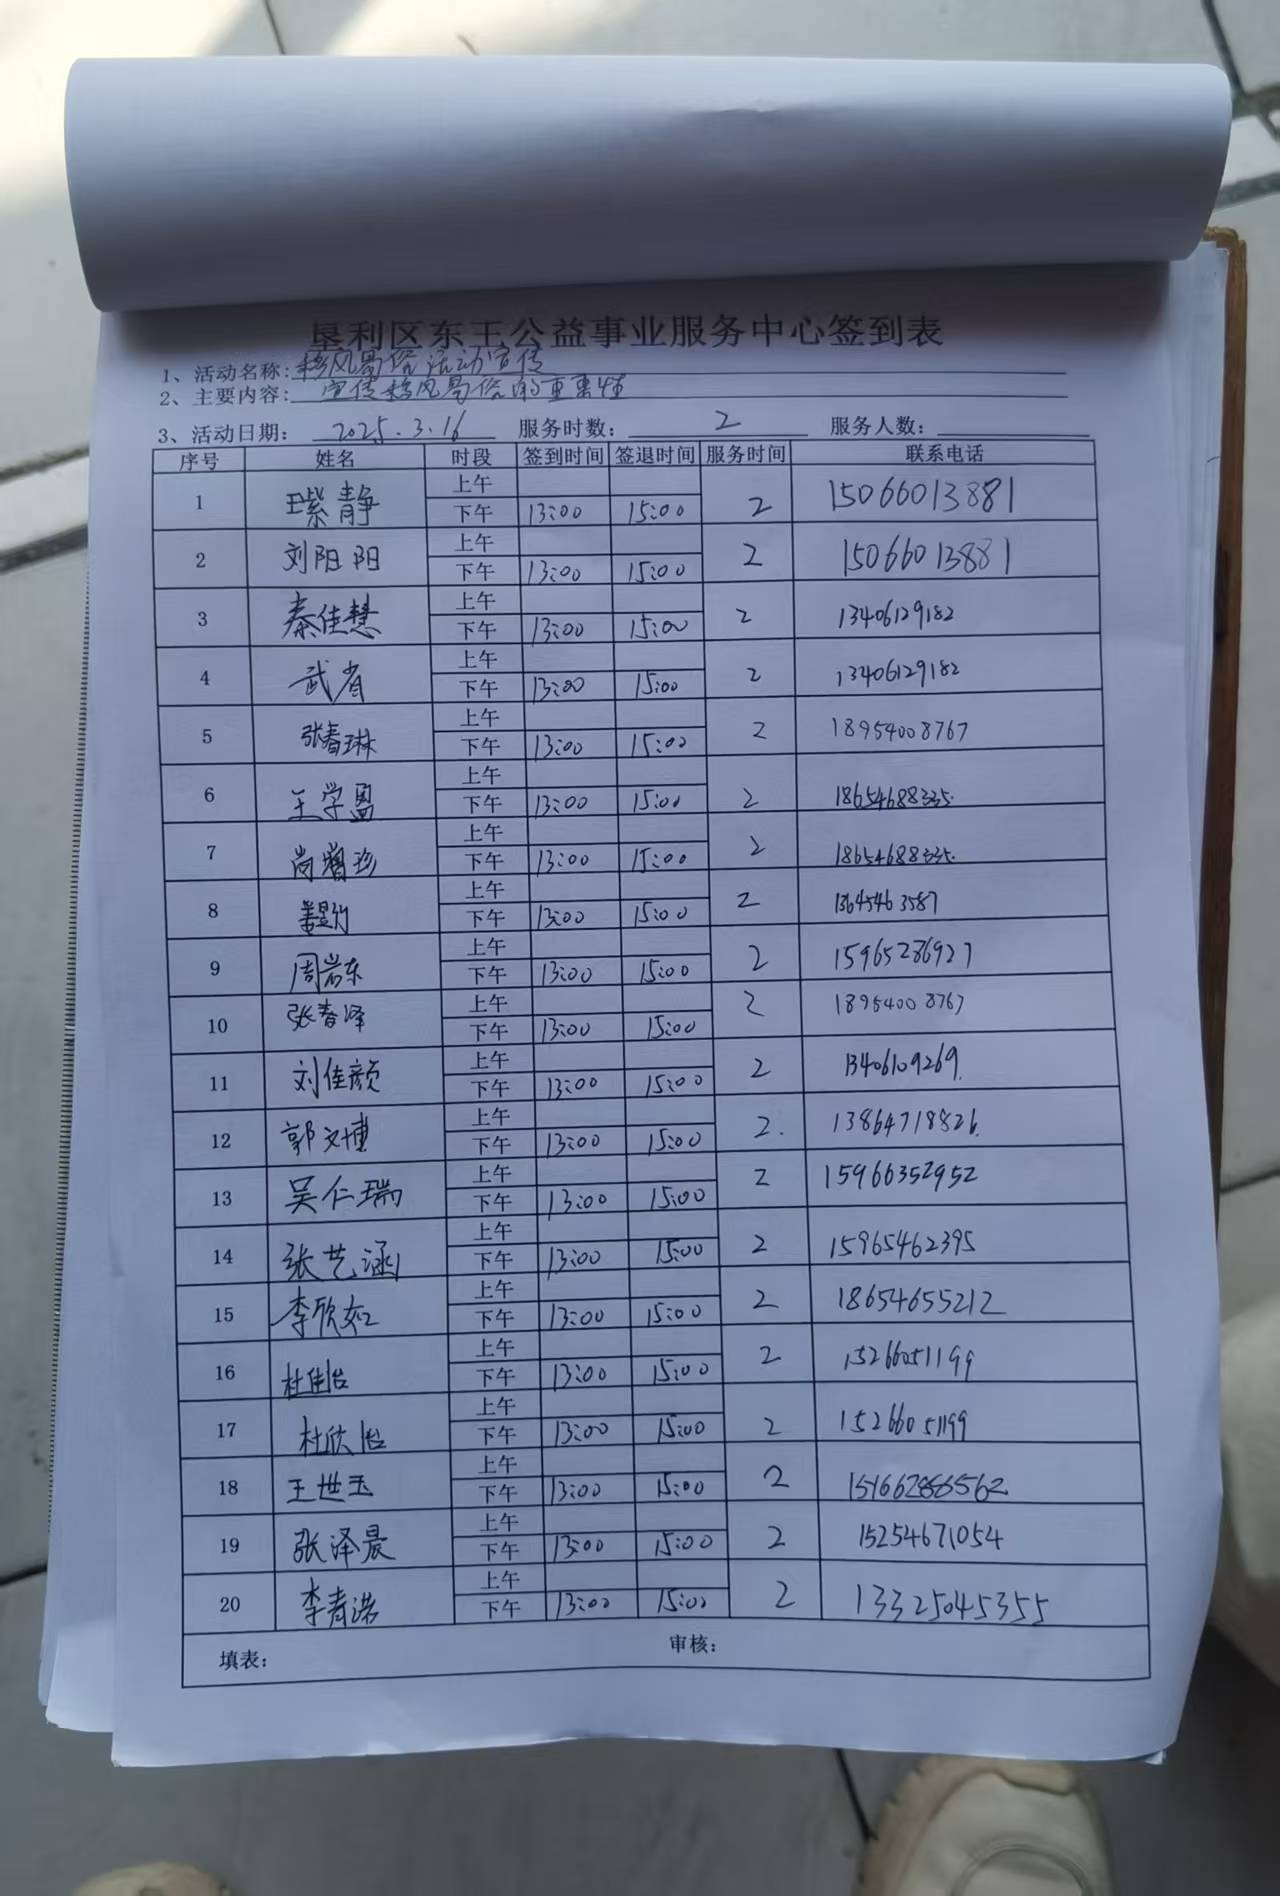 垦利区东王公益事业服务中心签到表
1、活动名称: 移风易俗活动宣传
2、主要内容: 宣传移风易俗的重要性
3、活动日期: 2025.3.16 服务时数: 2 服务人数:
序号 姓名 时段 签到时间 签退时间 服务时间 联系电话
1 王紫静 上午 2 15066013881
下午 13:00 15:00
2 刘阳阳 上午 2 15066013881
下午 13:00 15:00
3 秦佳慧 上午 2 13406129182
下午 13:00 15:00
4 武省 上午 2 13406129182
下午 13:00 15:00
5 张春琳 上午 2 18954008767
下午 13:00 15:00
6 王学盈 上午 2 18654688335
下午 13:00 15:00
7 上午 2 18654688335
下午 13:00 15:00
8 上午 2 13645463587
下午 13:00 15:00
9 周岩东 上午 2 15965286927
下午 13:00 15:00
10 张春泽 上午 2 18954008767
下午 13:00 15:00
11 刘佳颜 上午 2 13406109269
下午 13:00 15:00
12 郭文博 上午 2. 13864718826
下午 13:00 15:00
13 吴仁瑞 上午 2 15966352952
下午 13:00 15:00
14 张艺涵 上午 2 15965462395
下午 13:00 15:00
15 李欣如 上午 2 18654655212
下午 13:00 15:00
16 杜佳怡 上午 2 15266051199
下午 13:00 15:00
17 杜欣怡 上午 2 15266051199
下午 13:00 15:00
18 王世玉 上午 2
下午 13:00 15:00
19 张泽晨 上午 2 15254671054
下午 13:00 15:00
20 李青诺 上午 2 13325045355
下午 13:00 15:00
填表: 审核: